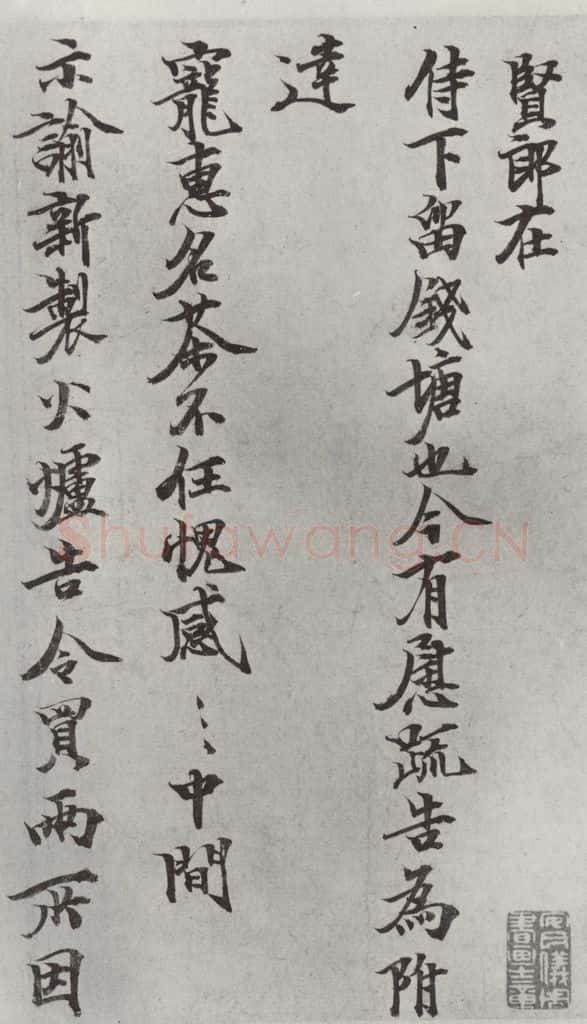 賢郎在
侍下留錢塘也今有慰疏告為附
達
寵惠名茶不任愧感〻中間
示諭新製火爐告令買兩所因
Shufawang.CN